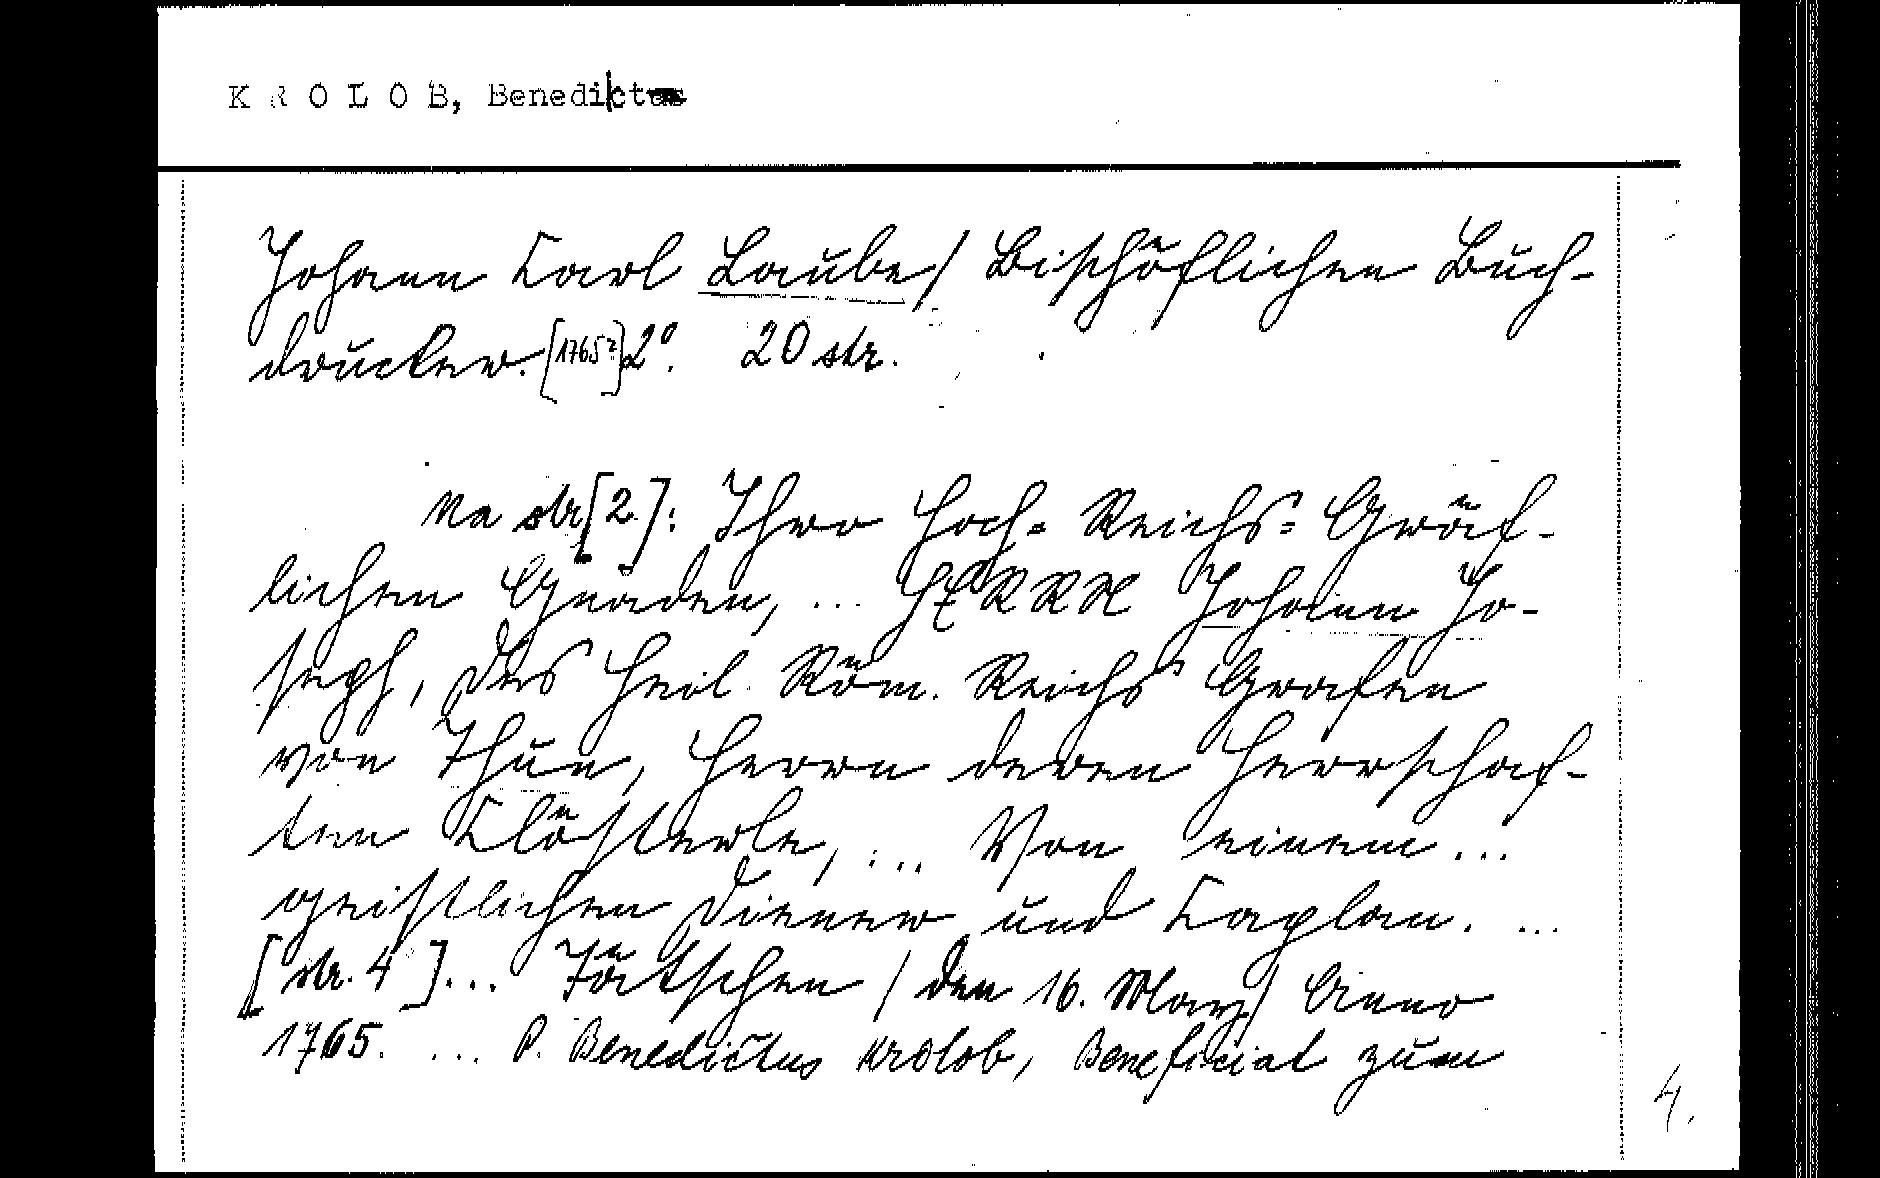 KROLOB, Benedict
Johann Carl Laube / Bischöflichen Buch-
drucker. [1765?] 2°. 20 str.
Na str. [2]: Ihro Hoch= Reichs= Gräf-
lichen Gnaden, ... HERRN Johann Jo-
seph, des Heil. Röm. Reichs Grafen
von Thun, Herrn deren Herrschaf-
ten Clösterle, ... Von einem ...
geistlichen Diener und Caplan. ...
[str. 4] ... Tätschen / den 16. May / Anno
1765. ... P. Benedictus Krolob, Beneficiat zum
4.